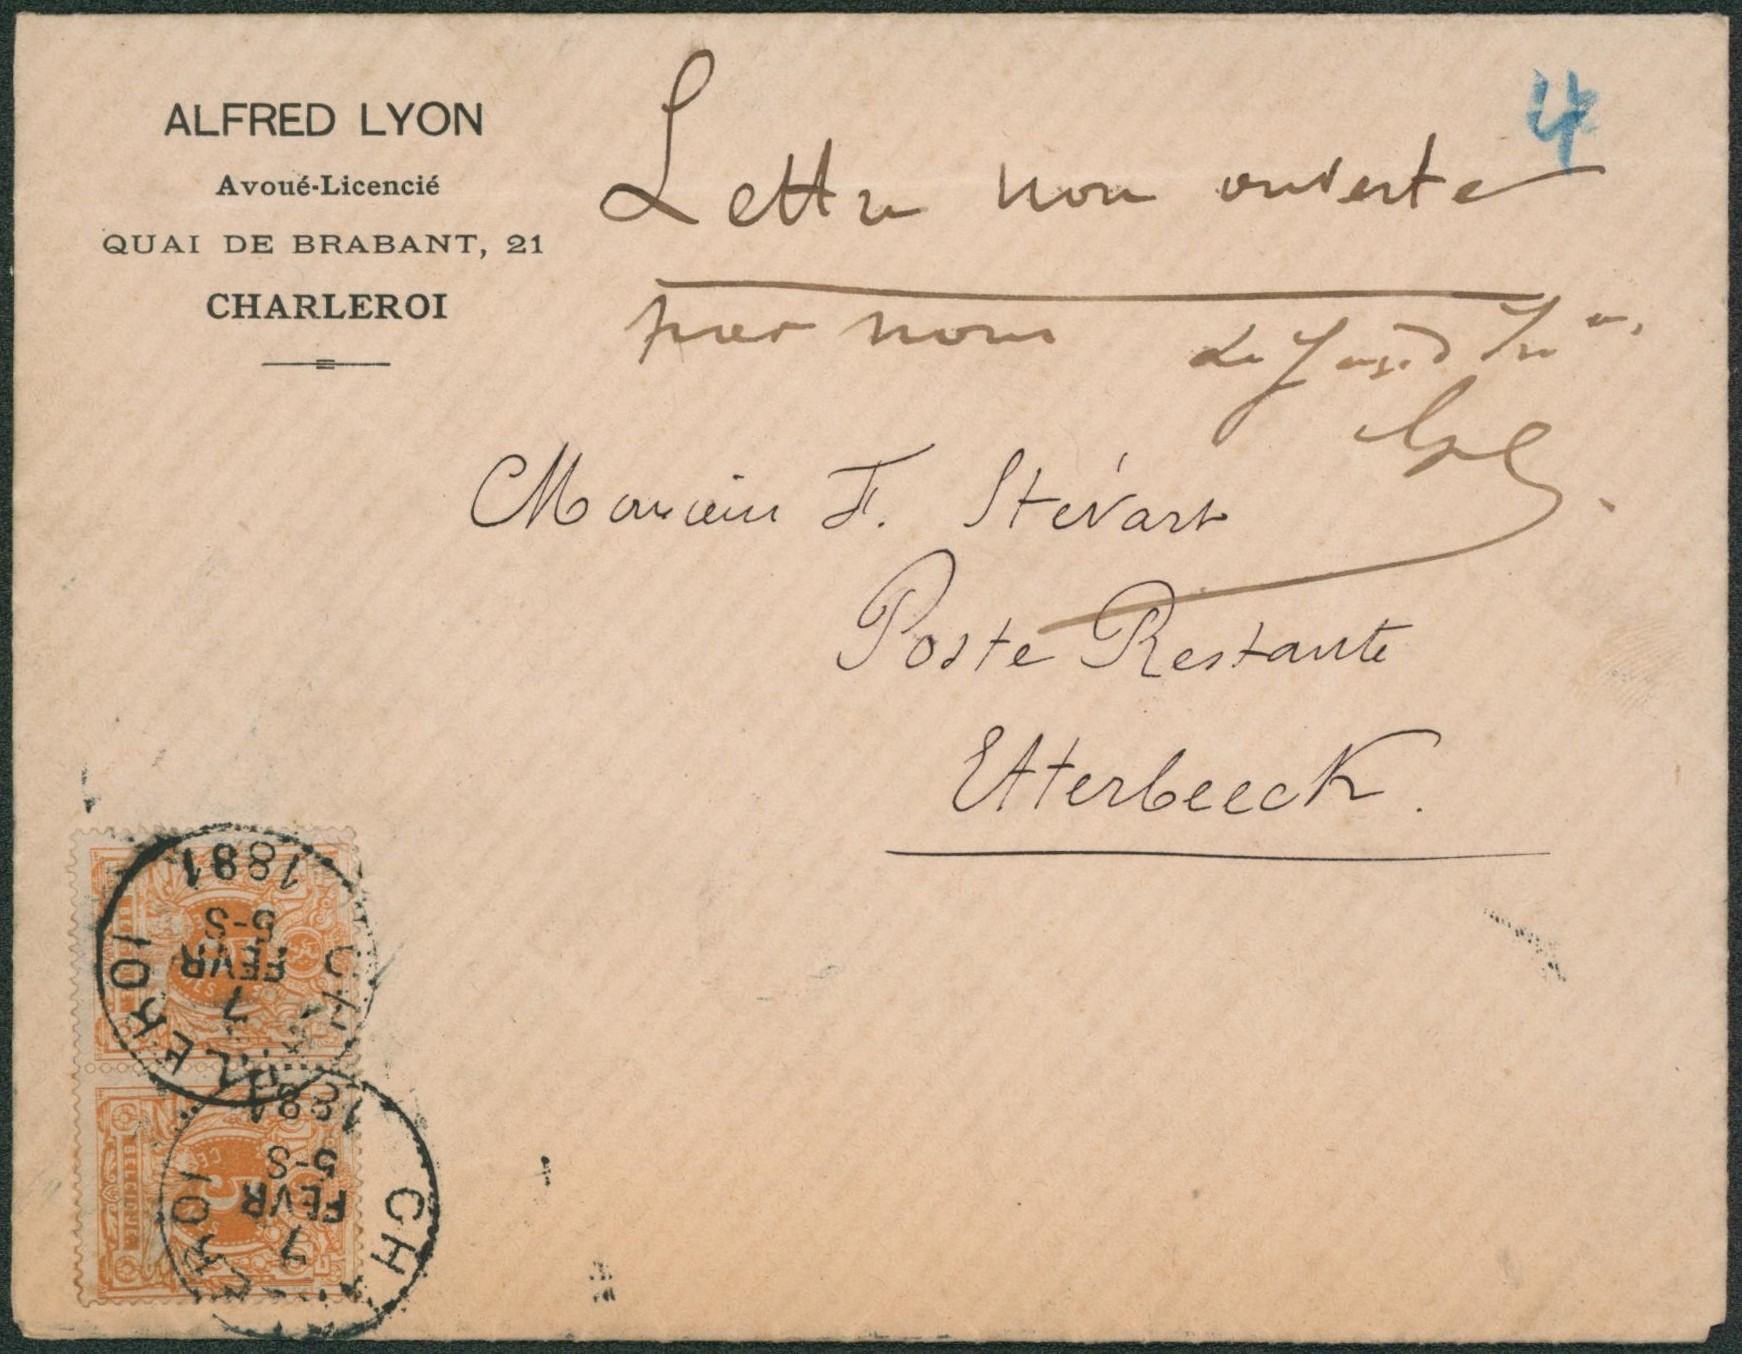 ALFRED LYON
Avoué-Licencié
QUAI DE BRABANT, 21
CHARLEROI
4
Lettre non ouverte
par nous
Monsieur F. Stévart
Poste Restante
Etterbeeck.
CHARLEROI
7
FEVR
5-S
1891
CHARLEROI
7
FEVR
5-S
1891
5
BELGIQUE